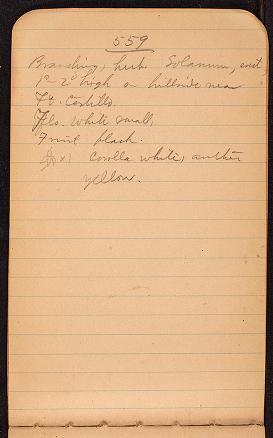 559
Branching, herb. Solanum, erect
1°-2° high on hillside near
Ft. Castillo.
Fls. white small,
Fruit black.
x1 Corolla white, anther
yellow.